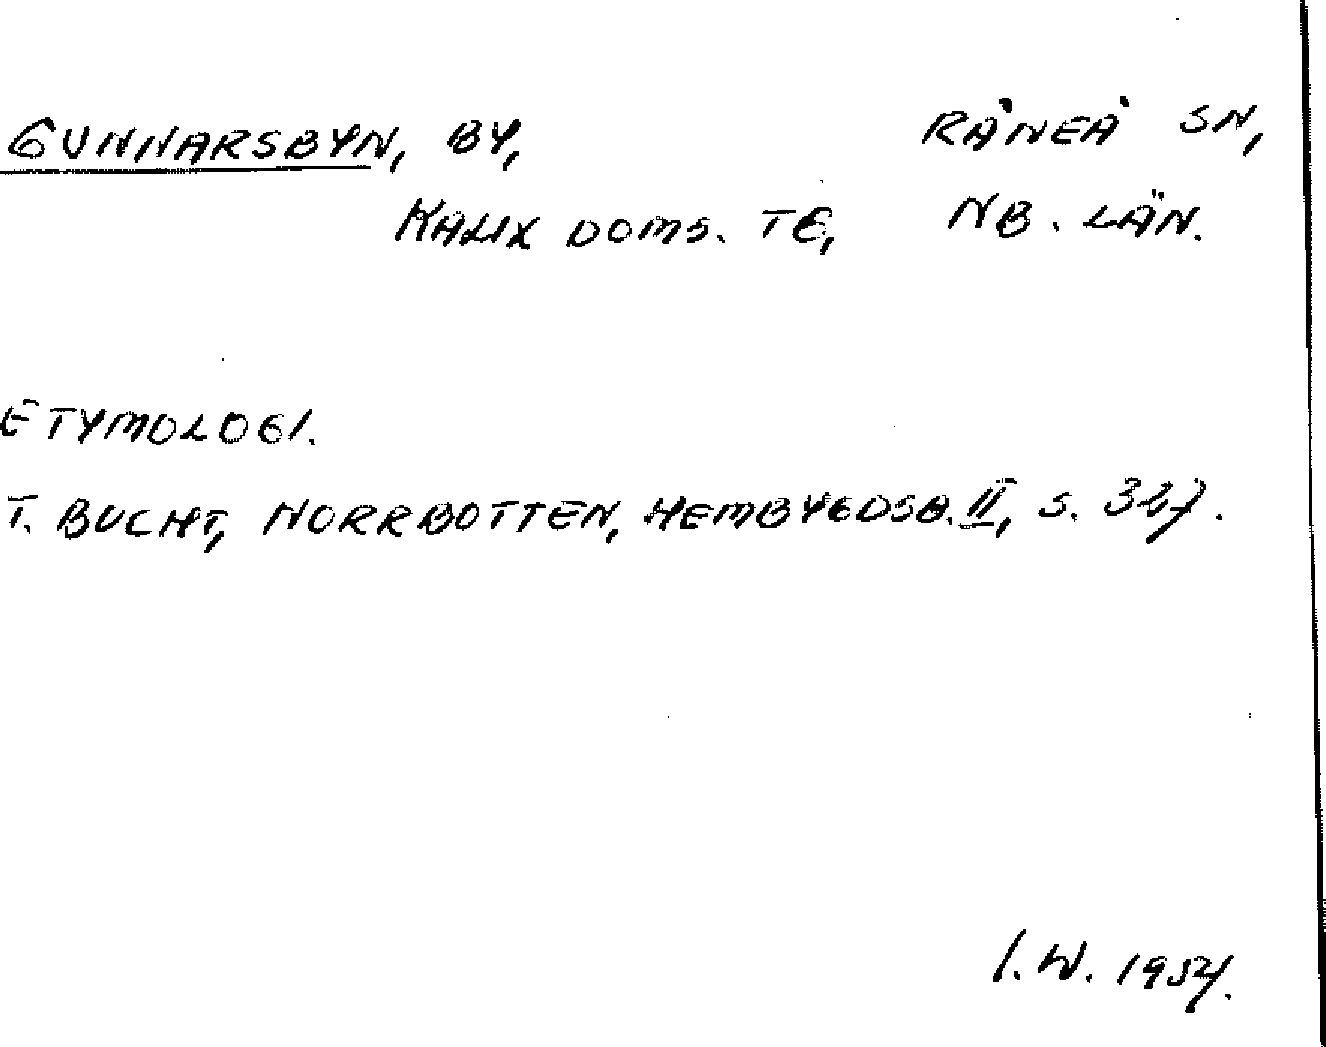 GUNNARSBYN, BY, RÅNEÅ SN,
KALIX DOMS. TE, NB. LÄN.
ETYMOLOGI.
T. BUCHT, NORRBOTTEN, HEMBYGDSB. II, S. 327.
I. W. 1954.